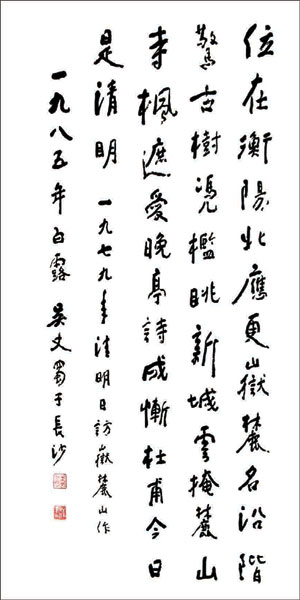 位在衡陽北應更山嶽麓名沿階
驚古樹憑檻眺新城雲掩麓山
寺楓遮愛晚亭詩成慚杜甫今日
是清明 一九七九年清明日訪嶽麓山作
一九八五年白露 吳丈蜀于長沙